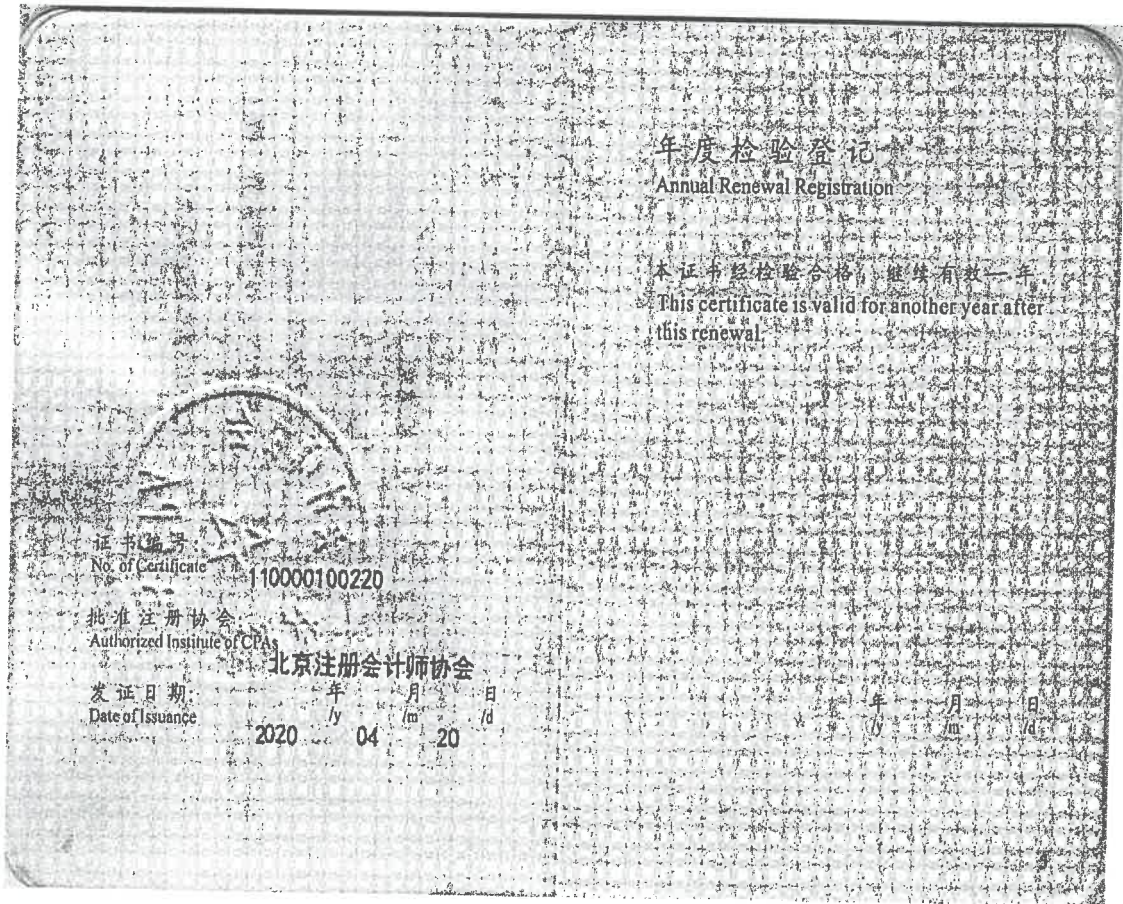 证书编号
No. of Certificate
110000100220
批准注册协会
Authorized Institute of CPAs
北京注册会计师协会
发证日期: 年 月 日
Date of Issuance /y /m /d
2020 04 20
年度检验登记
Annual Renewal Registration
本证书经检验合格,继续有效一年.
This certificate is valid for another year after
this renewal.
年 月 日
/y /m /d